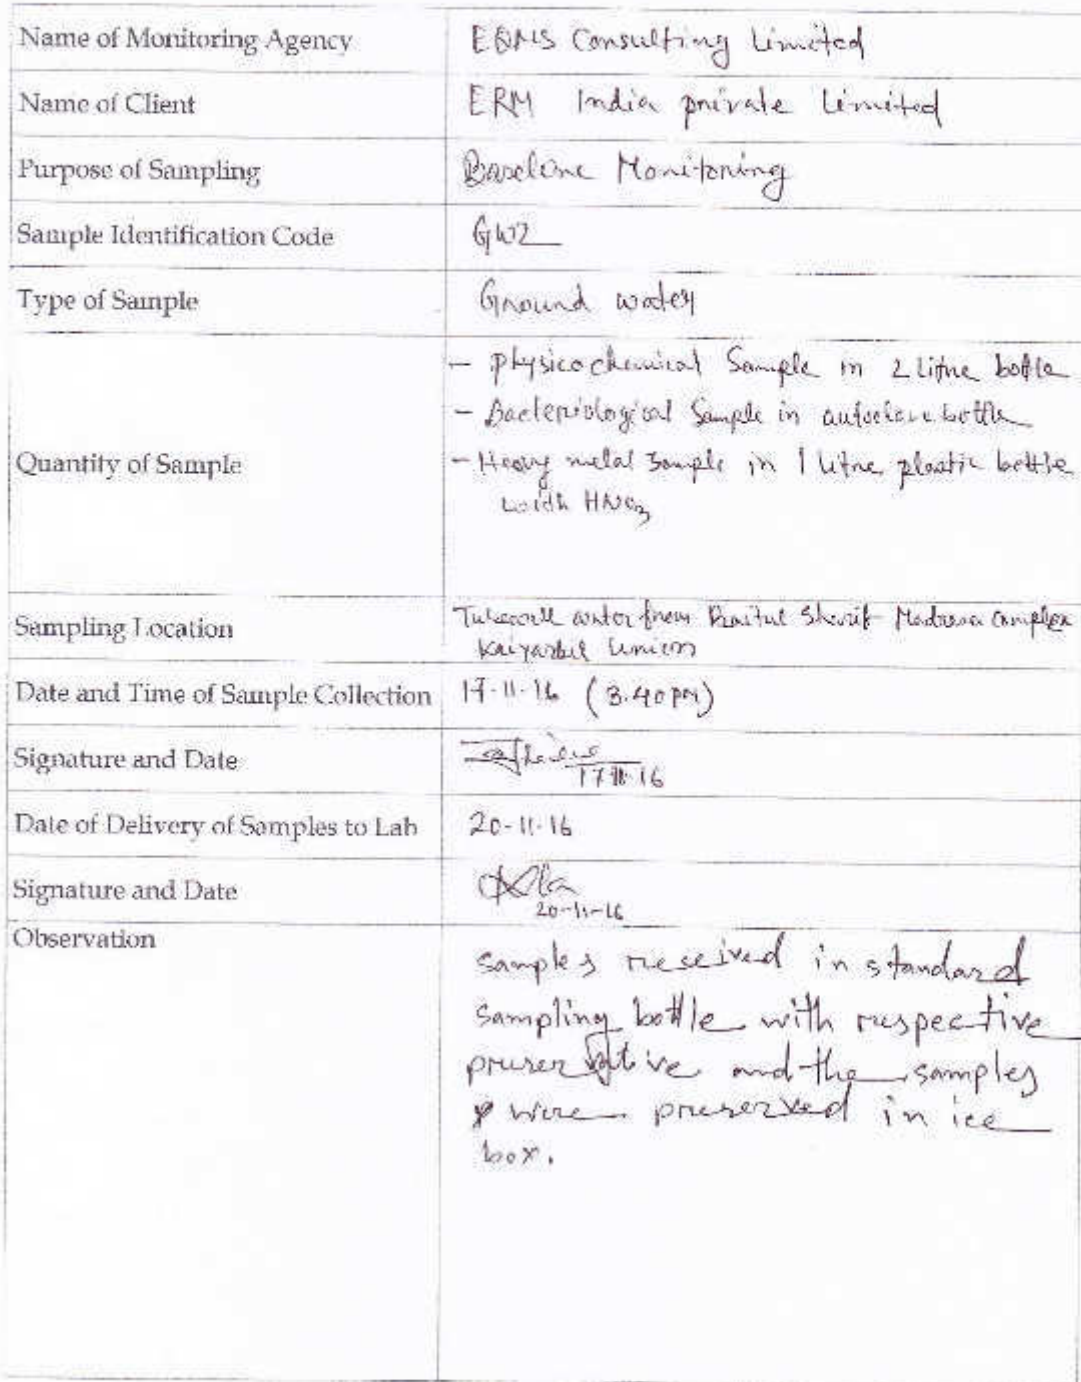 Name of Monitoring Agency EQMS Consulting Limited
Name of Client ERM India private Limited
Purpose of Sampling Baseline Monitoring
Sample Identification Code GW2
Type of Sample Ground water
- Physicochemical Sample in 2 Litre bottle
- Bacteriological Sample in autoclave bottle
Quantity of Sample - Heavy metal Sample in 1 litre plastic bottle
with HNO3
Sampling Location Tubewell water from Baitul Sharif Madrasa Complex
Union
Date and Time of Sample Collection 17-11-16 (3.40 pm)
Signature and Date
17-11-16
Date of Delivery of Samples to Lab 20-11-16
Signature and Date
20-11-16
Observation
samples received in standard
sampling bottle with respective
preservative and the samples
were preserved in ice
box.